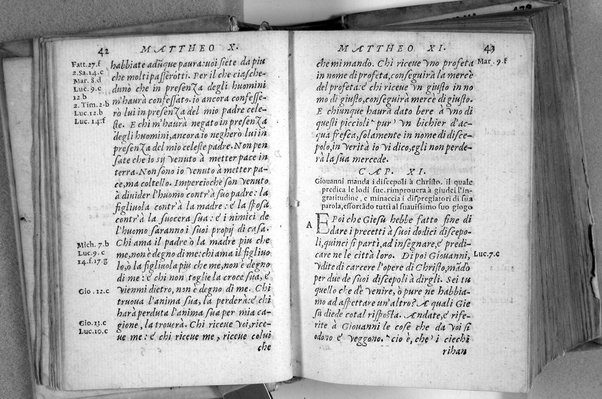 42 MATTHEO X.
Fatt.27.f
2.Sa.14.c
Mar.8.d
Luc.9.c
12.b
2.Tim.2.b
Luc.12.b
Luc.14.f
habbiate adũque paura: uoi siete da piu
che molti passerotti. Per il che ciasche-
duno che in presenza degli huomini
m'haurà confessato, io ancora confesse-
rò lui in presenza del mio padre cele-
ste. E chi m'haurà negato in presenza
degli huomini, ancora io negherò lui in
presenza del mio celeste padre. Non pen-
sate che io sij venuto à metter pace in
terra. Non sono io venuto à metter pa-
ce, ma coltello. Impercioche son venuto
à dividere l'huomo contr'à suo padre: la
figliuola contr'à la madre: e la sposa
contr'à la sucera sua: e i nimici de
l'huomo saranno i suoi propij di casa.
Mich.7.b
Luc.9.c
14.f.17 g
Chi ama il padre ò la madre piu che
me, non è degno di me: e chi ama il figliuo
lo, ò la figliuola piu che me, non è degno
di me: e chi non toglie la croce sua, e
Gio.12.c
viemmi dietro, non è degno di me. Chi
truova l'anima sua, la perderà: e chi
harà perduta l'anima sua per mia ca-
Gio.13.c
Luc.10.c
gione, la troverà. Chi riceve voi, rice-
ue me: e chi riceue me, riceue colui
che
MATTHEO XI. 43
che mi mando. Chi riceve vno profeta
Mar.9.f
in nome di profeta, conseguirà la mercè
del profeta: e chi riceve vn giusto in no
mo di giusto, conseguirà mercè di giusto.
E chiunque haurà dato bere à vno di
questi piccioli pur vn bichier d'ac-
qua fresca, solamente in nome di disce-
polo, in verità io vi dico, egli non perde-
rà la sua mercede.
CAP. XI.
Giouanni manda i discepoli à Christo, il quale
predica le lodi sue, rimprouera à giudei l'in-
gratitudine, e minaccia i dispregiatori di sua
parola, essortado tutti al suauissimo suo giogo
A
E Poi che Giesù hebbe fatto fine di
dare i precetti à suoi dodici discepo-
li, quinci si partì, ad insegnare, e predi-
care ne le città loro. Di poi Giouanni,
Luc.7.c
vdite di carcere l'opere di Christo, mãdò
per due de suoi discepoli à dirgli. Sei tu
quello che de venire, ò pure ne habbia-
mo ad aspettare un'altro? A quali Gie
sù diede cotal risposta. Andate, e rife-
rite à Giouanni le cose che da voi si
odono e veggono. cio è, che i ciechi
rihan